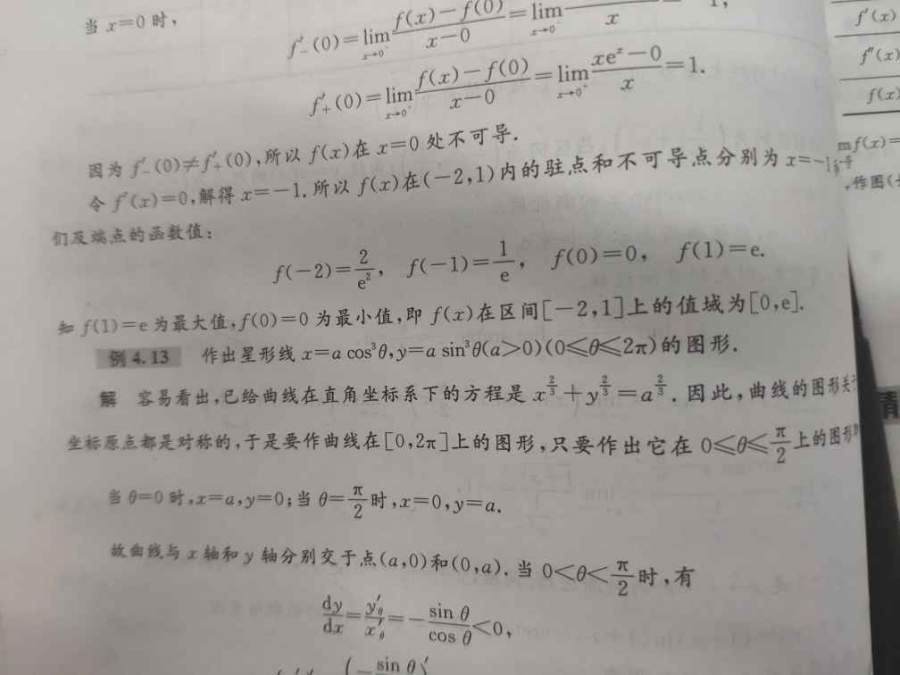 当 x=0 时,
f′₋(0)=lim_{x→0⁻} (f(x)−f(0))/(x−0)=lim_{x→0⁻} /x
f′₊(0)=lim_{x→0⁺} (f(x)−f(0))/(x−0)=lim_{x→0⁺} (xeˣ−0)/x=1.
因为 f′₋(0)≠f′₊(0),所以 f(x)在 x=0 处不可导.
令 f′(x)=0,解得 x=−1.所以 f(x)在(−2,1)内的驻点和不可导点分别为 x=−1
们及端点的函数值:
f(−2)=2/e², f(−1)=1/e, f(0)=0, f(1)=e.
知 f(1)=e 为最大值,f(0)=0 为最小值,即 f(x)在区间[−2,1]上的值域为[0,e].
例 4.13 作出星形线 x=a cos³θ,y=a sin³θ(a>0)(0≤θ≤2π)的图形.
解 容易看出,已给曲线在直角坐标系下的方程是 x^{2/3}+y^{2/3}=a^{2/3}.因此,曲线的图形关于
坐标原点都是对称的,于是要作曲线在[0,2π]上的图形,只要作出它在 0≤θ≤π/2 上的图形
当 θ=0 时,x=a,y=0;当 θ=π/2 时,x=0,y=a.
故曲线与 x 轴和 y 轴分别交于点(a,0)和(0,a).当 0<θ<π/2 时,有
dy/dx=y′_θ/x′_θ=−sin θ/cos θ<0,
(−sin θ
f′(x)
f″(x)
f(x)
f(x)=
,作图(